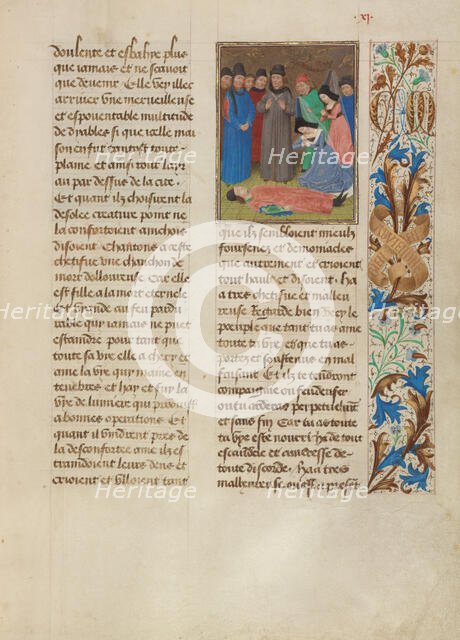 xj.
doulente et esbahie plus
que iamais et ne scauoit
que deuenir Elle veyt illec
arriuer vne merueilleuse
et espouentable multitude
de dyables si que icelle mai
son en fut tantost toute
plaine et aussi tout l'ayr
au par dessus de la cite.
Et quant ilz choisirent la
desolee creature point ne
la confortoient ainchois
disoient Chantons a ceste
chetifue vne chanchon de
mort doloureuse Car elle
est fille a la mort eternele
et viande au feu pardu
rable qui iamais ne poet
estaindre pour tant que
toute sa vie elle a chery et
ame la vye qui maine en
tenebres et hay et fuy la
vye de lumiere qui
a bonnes operations Et
quant il vindrent pres de
la desconfortee ame ilz es
traindoient leurs dens et
crioient et vlloient tant
que ilz sembloient mieulz
foursenez et demoniacles
que autrement et crioient
tout hault et disoient. Ha
a tres chetifue et malleu
reuse Regarde bien voey le
peuple que tant tu as ame
toute ta vye et que tu as
portez et soustenus en mal
faisant Et ilz te tendront
compaignie ou feu denfer
ou tu arderas perpetuelement
et sans fin Car tu as toute
ta vye este nourri de tout
escandele et amateresse de
toute discorde. Ha a tres
heritage
Images